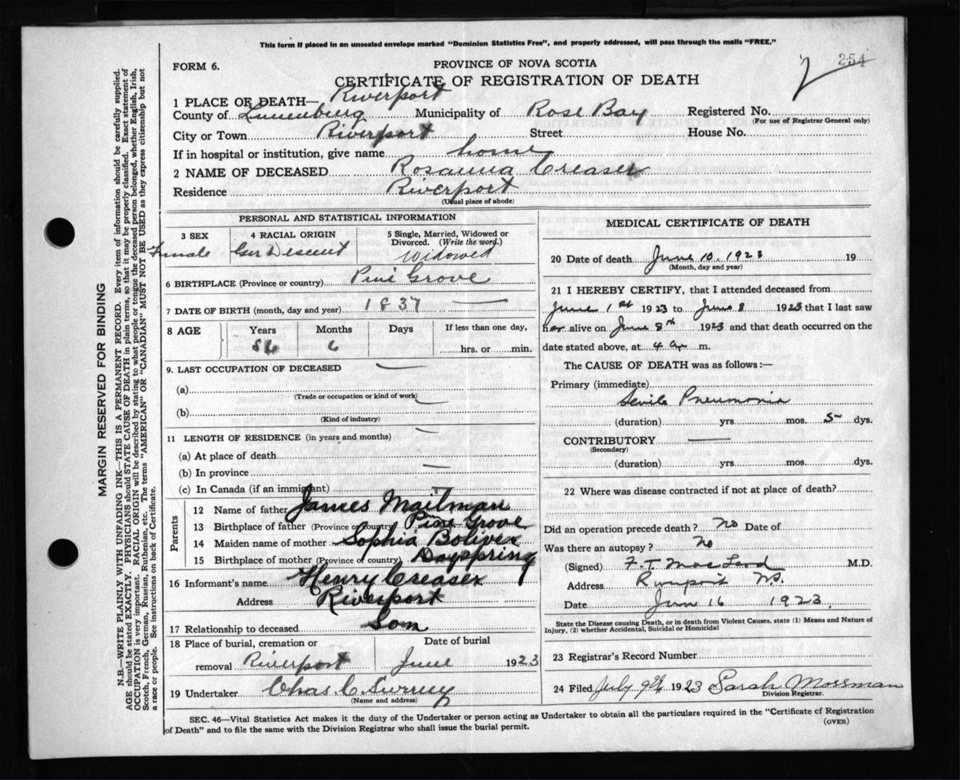 This form if placed in an unsealed envelope marked "Dominion Statistics Free", and properly addressed, will pass through the mails "FREE."
254
2
FORM 6.
PROVINCE OF NOVA SCOTIA
CERTIFICATE OF REGISTRATION OF DEATH
1 PLACE OF DEATH— Riverport
County of Lunenburg Municipality of Rose Bay Registered No.
(For use of Registrar General only)
City or Town Riverport Street House No.
If in hospital or institution, give name home
2 NAME OF DECEASED Rosanna Creaser
Residence Riverport
(Usual place of abode)
MARGIN RESERVED FOR BINDING
N.B.—WRITE PLAINLY WITH UNFADING INK—THIS IS A PERMANENT RECORD. Every item of information should be carefully supplied.
AGE should be stated EXACTLY. PHYSICIANS should STATE CAUSE OF DEATH in plain terms, so that it may be properly classified. Exact statement of
OCCUPATION is very important. RACIAL ORIGIN will be described by stating to what people or tongue the deceased person belonged, whether English, Irish,
Scotch, French, German, Russian, Ruthenian, etc. The terms "AMERICAN" or "CANADIAN" MUST NOT BE USED as they express citizenship but not
a race or people. See instructions on back of Certificate.
PERSONAL AND STATISTICAL INFORMATION
3 SEX
Female
4 RACIAL ORIGIN
Ger Descent
5 Single, Married, Widowed or
Divorced. (Write the word.)
Widowed
6 BIRTHPLACE (Province or country) Pine Grove
7 DATE OF BIRTH (month, day and year) 1837 —
8 AGE
Years Months Days If less than one day,
86 6 hrs. or min.
9. LAST OCCUPATION OF DECEASED —
(a)
(Trade or occupation or kind of work)
(b) —
(Kind of industry)
11 LENGTH OF RESIDENCE (in years and months) —
(a) At place of death
(b) In province —
(c) In Canada (if an immigrant) —
Parents
12 Name of father James Mailman
13 Birthplace of father (Province or country) Pine Grove
14 Maiden name of mother Sophia Boliver
15 Birthplace of mother (Province or country) Dayspring
16 Informant's name Henry Creaser
Address Riverport
17 Relationship to deceased Son
18 Place of burial, cremation or Date of burial
removal Riverport June 1923
19 Undertaker Chas C
(Name and address)
MEDICAL CERTIFICATE OF DEATH
20 Date of death June 10. 1923 19
(Month, day and year)
21 I HEREBY CERTIFY, that I attended deceased from
June 1st 1923 to June 8 1923 that I last saw
her alive on June 8th 1923 and that death occurred on the
date stated above, at 4 a. m.
The CAUSE OF DEATH was as follows:—
Primary (immediate)
Senile Pneumonia
(duration) yrs. mos. 5 dys.
CONTRIBUTORY —
(Secondary)
(duration) yrs. mos. dys.
22 Where was disease contracted if not at place of death?
Did an operation precede death? no Date of
Was there an autopsy? no
(Signed) F. T. MacLeod M.D.
Address Riverport N.S.
Date June 16 1923.
State the Disease causing Death, or in death from Violent Causes, state (1) Means and Nature of
Injury, (2) whether Accidental, Suicidal or Homicidal
23 Registrar's Record Number
24 Filed July 9th 1923 Sarah Mossman
Division Registrar.
SEC. 46—Vital Statistics Act makes it the duty of the Undertaker or person acting as Undertaker to obtain all the particulars required in the "Certificate of Registration
of Death" and to file the same with the Division Registrar who shall issue the burial permit. (OVER)